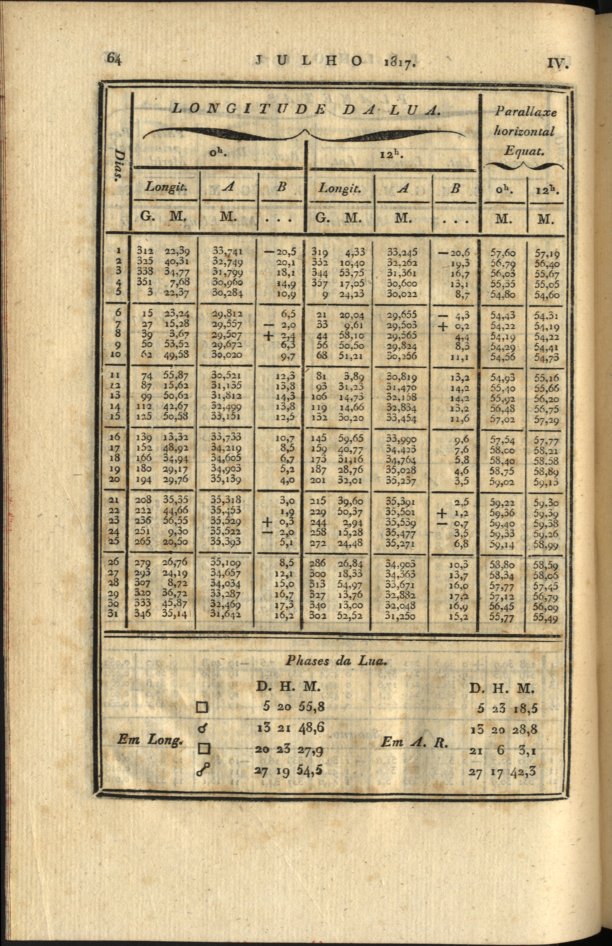 64 JULHO 1817. IV.
LONGITUDE DA LUA. Parallaxe
horizontal
Equat.
Dias.
0h. 12h.
Longit. A B Longit. A B 0h. 12h.
G. M. M. ... G. M. M. ... M. M.
1 312 22,39 33,741 —20,5 319 4,33 33,245 —20,6 57,60 57,19
2 325 40,31 32,749 20,1 332 10,40 32,262 19,3 56,79 56,40
3 338 34,77 31,799 18,1 344 53,75 31,361 16,7 56,03 55,67
4 351 7,68 30,960 14,9 357 17,05 30,600 13,1 55,35 55,05
5 3 22,37 30,284 10,9 9 24,23 30,022 8,7 54,80 54,60
6 15 23,24 29,812 6,5 21 20,04 29,655 — 4,3 54,43 54,31
7 27 15,28 29,557 — 2,0 33 9,61 29,503 + 0,2 54,22 54,19
8 39 3,67 29,507 + 2,4 44 58,10 29,565 4,4 54,19 54,22
9 50 53,52 29,672 6,3 56 50,50 29,824 8,3 54,29 54,41
10 62 49,58 30,020 9,7 68 51,21 30,256 11,1 54,56 54,73
11 74 55,87 30,521 12,3 81 3,89 30,819 13,2 54,93 55,16
12 87 15,62 31,135 13,8 93 31,23 31,470 14,2 55,40 55,66
13 99 50,62 31,812 14,3 106 14,73 32,158 14,2 55,92 56,20
14 112 42,67 32,499 13,8 119 14,66 32,834 13,2 56,48 56,75
15 125 50,58 33,151 12,5 132 30,20 33,454 11,6 57,02 57,29
16 139 13,32 33,733 10,7 145 59,65 33,990 9,6 57,54 57,77
17 152 48,92 34,219 8,5 159 40,77 34,423 7,6 58,00 58,21
18 166 34,94 34,605 6,7 173 31,16 34,764 5,8 58,40 58,58
19 180 29,17 34,903 5,2 187 28,76 35,028 4,6 58,75 58,89
20 194 29,76 35,139 4,0 201 32,01 35,237 3,5 59,02 59,13
21 208 35,35 35,318 3,0 215 39,60 35,391 2,5 59,22 59,30
22 222 44,66 35,453 1,9 229 50,37 35,501 + 1,2 59,36 59,39
23 236 56,55 35,529 + 0,3 244 2,94 35,539 — 0,7 59,40 59,38
24 251 9,30 35,522 — 2,0 258 15,28 35,477 3,5 59,33 59,26
25 265 20,50 35,393 5,1 272 24,48 35,271 6,8 59,14 58,99
26 279 26,76 35,109 8,5 286 26,84 34,903 10,3 58,80 58,59
27 293 24,19 34,657 12,1 300 18,33 34,363 13,7 58,34 58,06
28 307 8,72 34,034 15,0 313 54,97 33,671 16,0 57,77 57,45
29 320 36,72 33,287 16,7 327 13,76 32,882 17,2 57,12 56,79
30 333 45,87 32,469 17,3 340 13,00 32,048 16,9 56,45 56,09
31 346 35,14 31,642 16,2 302 52,52 31,250 15,2 55,77 55,49
Phases da Lua.
D. H. M. D. H. M.
□ 5 20 55,8 5 23 18,5
☌ 13 21 48,6 13 20 28,8
Em Long. Em A. R.
□ 20 23 27,9 21 6 3,1
☍ 27 19 54,5 27 17 42,3